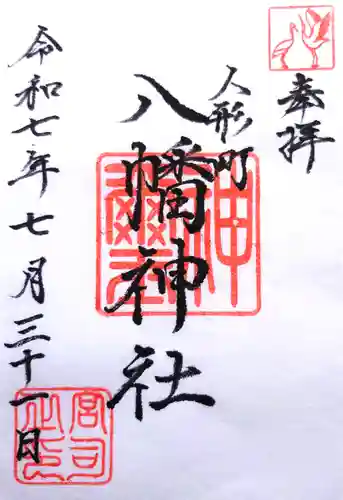 奉拝
人形町
八幡神社
令和七年七月三十一日